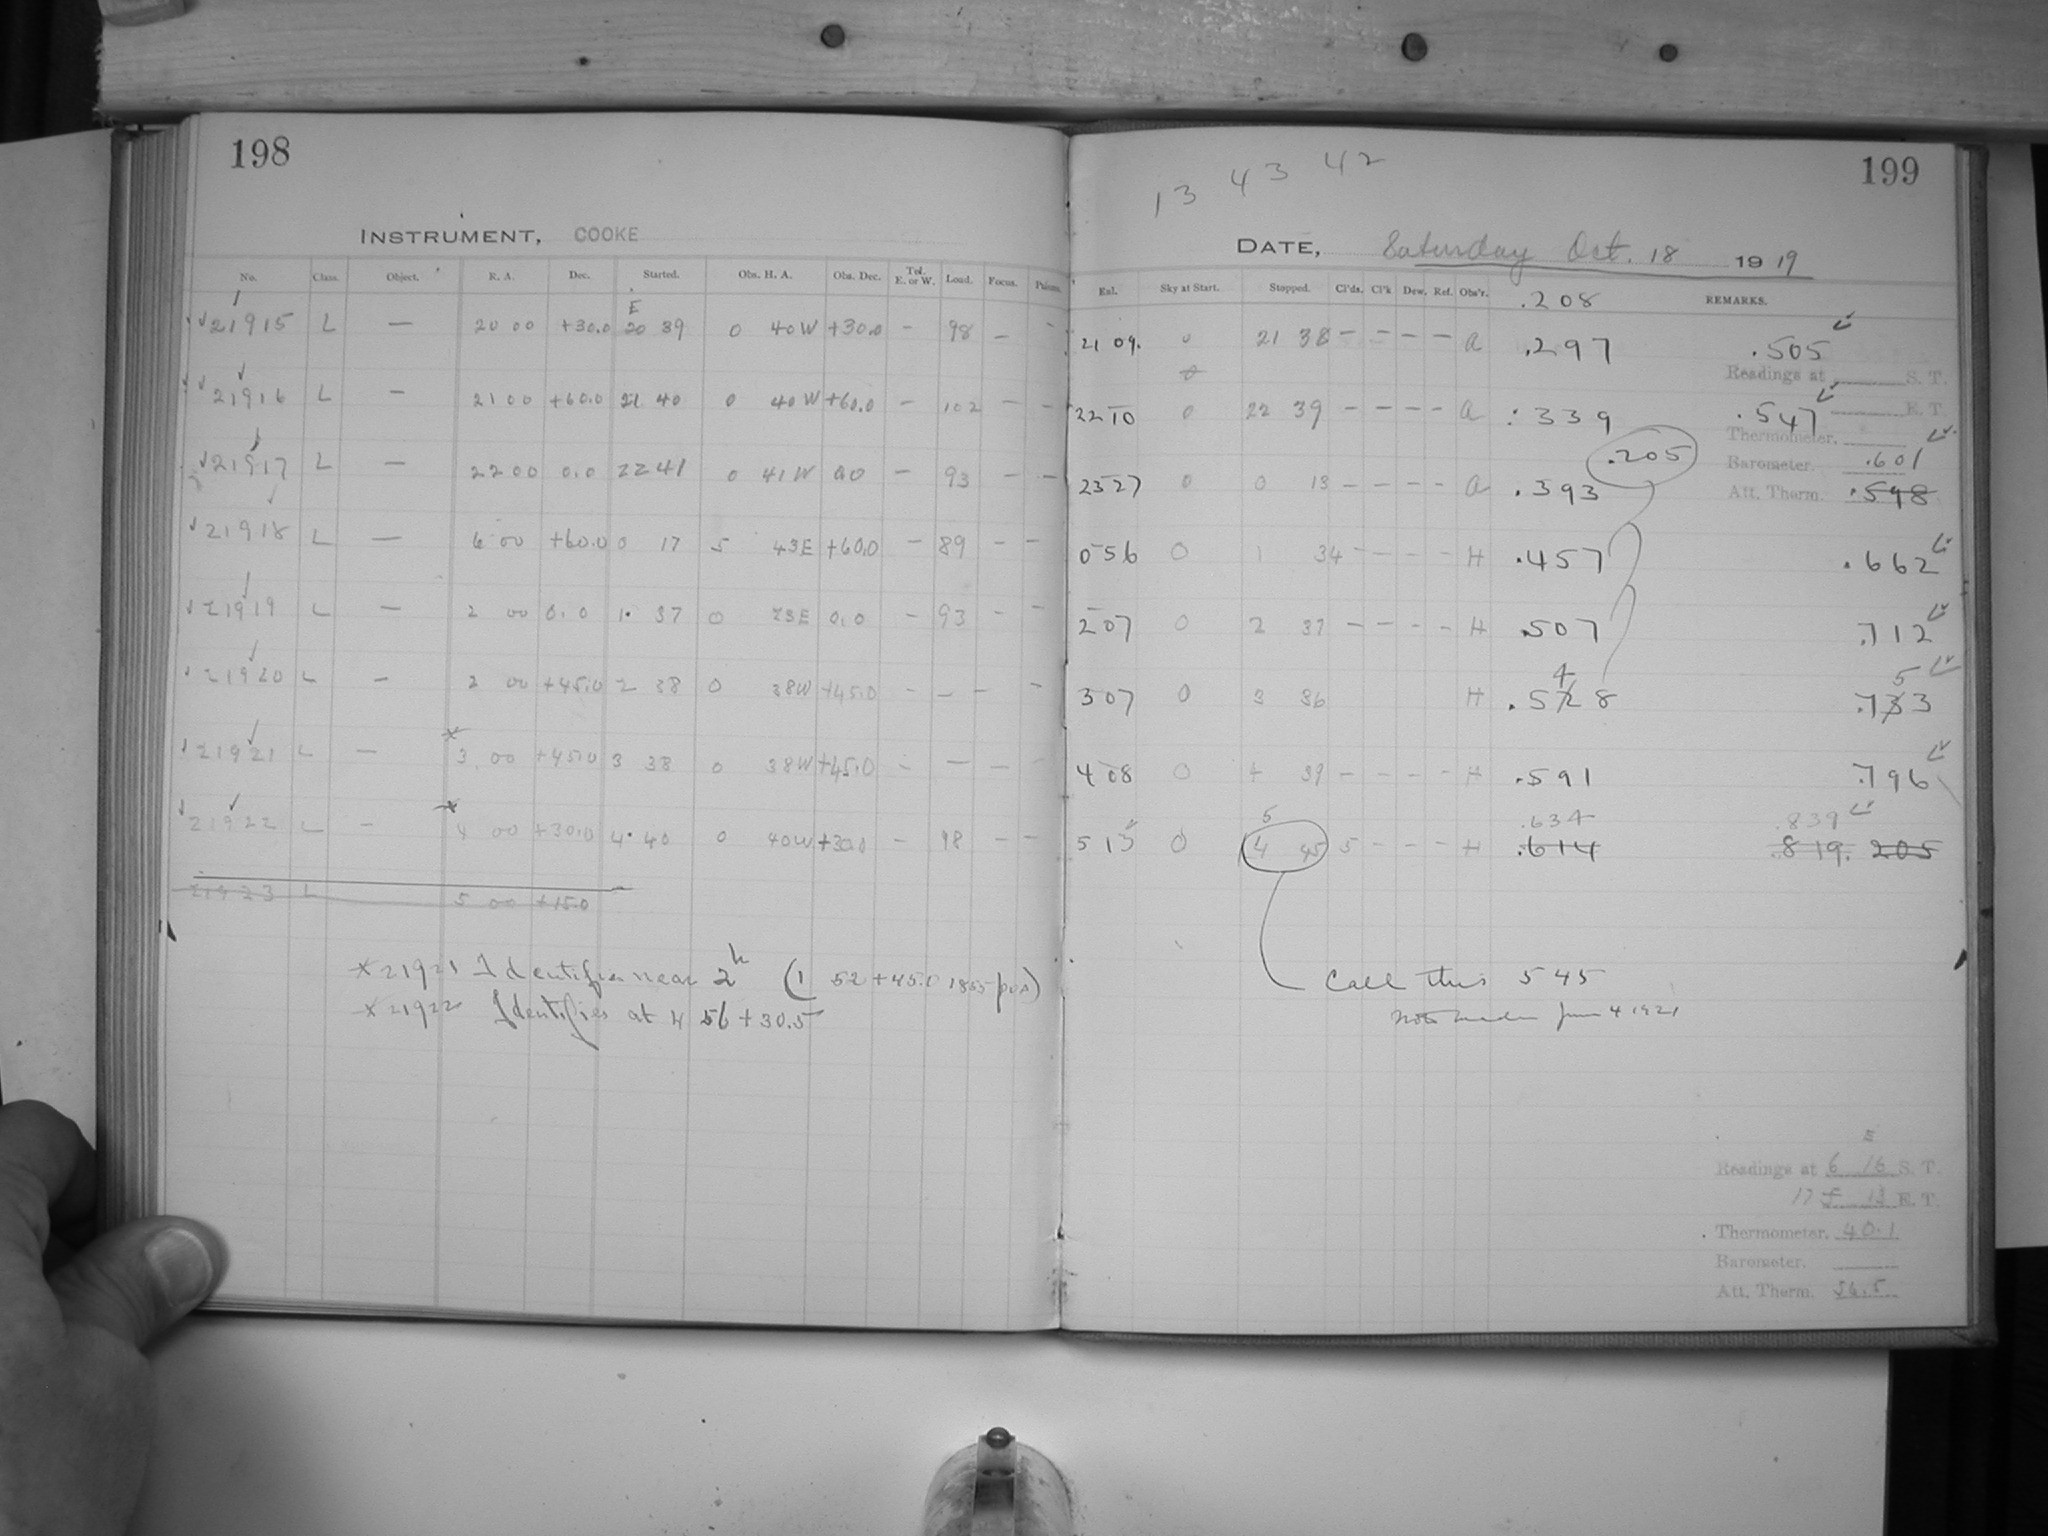 198
INSTRUMENT, COOKE
No. Class. Object. R. A. Dec. Started. Obs. H. A. Obs. Dec. Tel. E. or W. Load. Focus.
E
21915 L — 20 00 +30.0 20 39 0 40W +30.0 — 98 —  —
21916 L — 21 00 +60.0 21 40 0 40W +60.0 — 102 — —
21917 L — 22 00 0.0 22 41 0 41W 0.0 — 93 — —
21918 L — 6 00 +60.0 0 17 5 43E +60.0 — 89 — —
21919 L — 2 00 0.0 1 37 0 23E 0.0 — 93 — —
21920 L — 2 00 +45.0 2 38 0 38W +45.0 — — — —
21921 L — * 3 00 +45.0 3 38 0 38W +45.0 — — — —
21922 L — * 4 00 +30.0 4 40 0 40W +30.0 — 98 — —
21923 L 5 00 +15.0
* 21921 Identifies near 2h (1 52 +45.0 1855 pos)
* 21922 Identifies at 4 56 +30.5
199
13 43 42
DATE, Saturday Oct. 18 1919
Exl. Sky at Start. Stopped. Cl'ds. Cl'k Dew. Ref. Obs'r. .208 REMARKS.
21 09. 0 21 38 — — — — A .297 .505
Readings at S. T.
22 10 0 22 39 — — — — A .339 .547 E. T.
Thermometer.
.205 Barometer. .601
23 27 0 0 13 — — — — A .393 Att. Therm. .598
0 56 0 1 34 — — — — H .457 .662
2 07 0 2 37 — — — — H .507 .712
4 5
3 07 0 3 36 H .528 .733
4 08 0 4 39 — — — — H .591 .796
5 .634 .839
5 13 0 4 45 5 — — — H .614 .819. 205
Call this 5 45
Note made June 4 1921
Readings at 6 16 S. T.
17 13 E. T.
Thermometer. 40.1
Barometer.
Att. Therm. 56.5